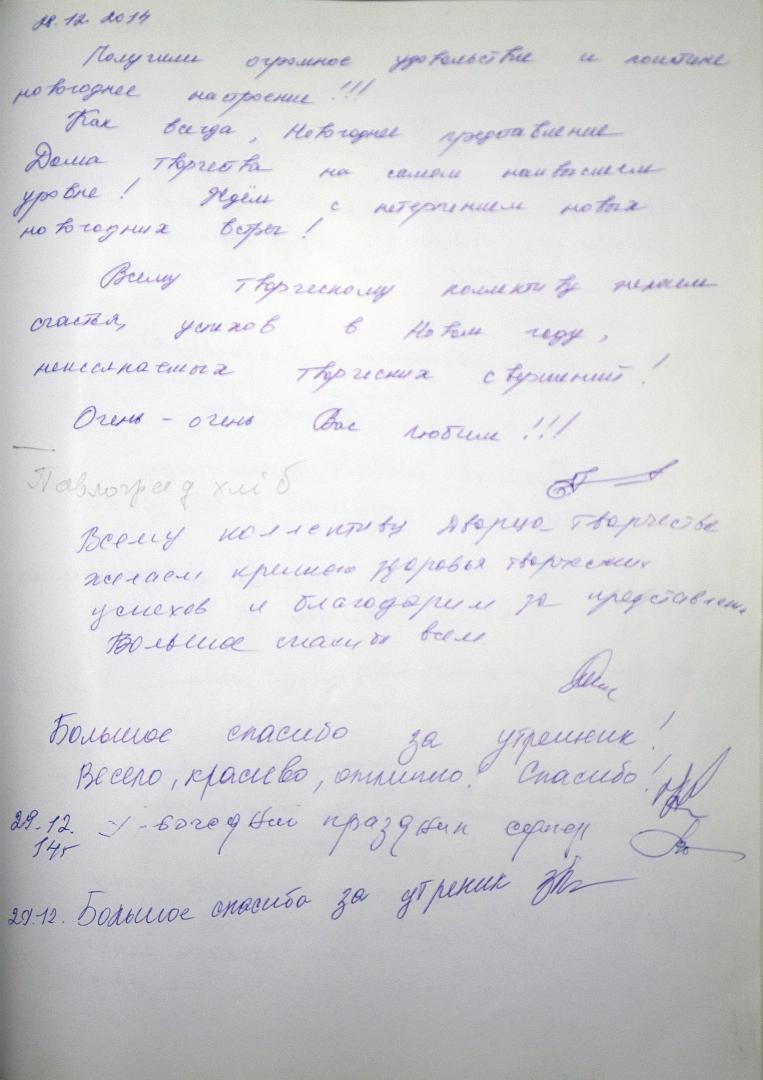 28.12.2014
Получили огромное удовольствие и поистине
новогоднее настроение!!!
Как всегда, Новогоднее представление
Дома творчества на самом наивысшем
уровне! Ждём с нетерпением новых
новогодних встреч!
Всему творческому коллективу желаем
счастья, успехов в Новом году,
неиссякаемых творческих свершений!
Очень - очень Вас любим!!!
Павлоград хліб
Всему коллективу Дворца творчества
желаем крепкого здоровья творческих
успехов и благодарим за представление
Большое спасибо всем.
Большое спасибо за утренник!
Весело, красиво, отлично! Спасибо!
29.12. праздник супер
14г
29.12. Большое спасибо за утреник